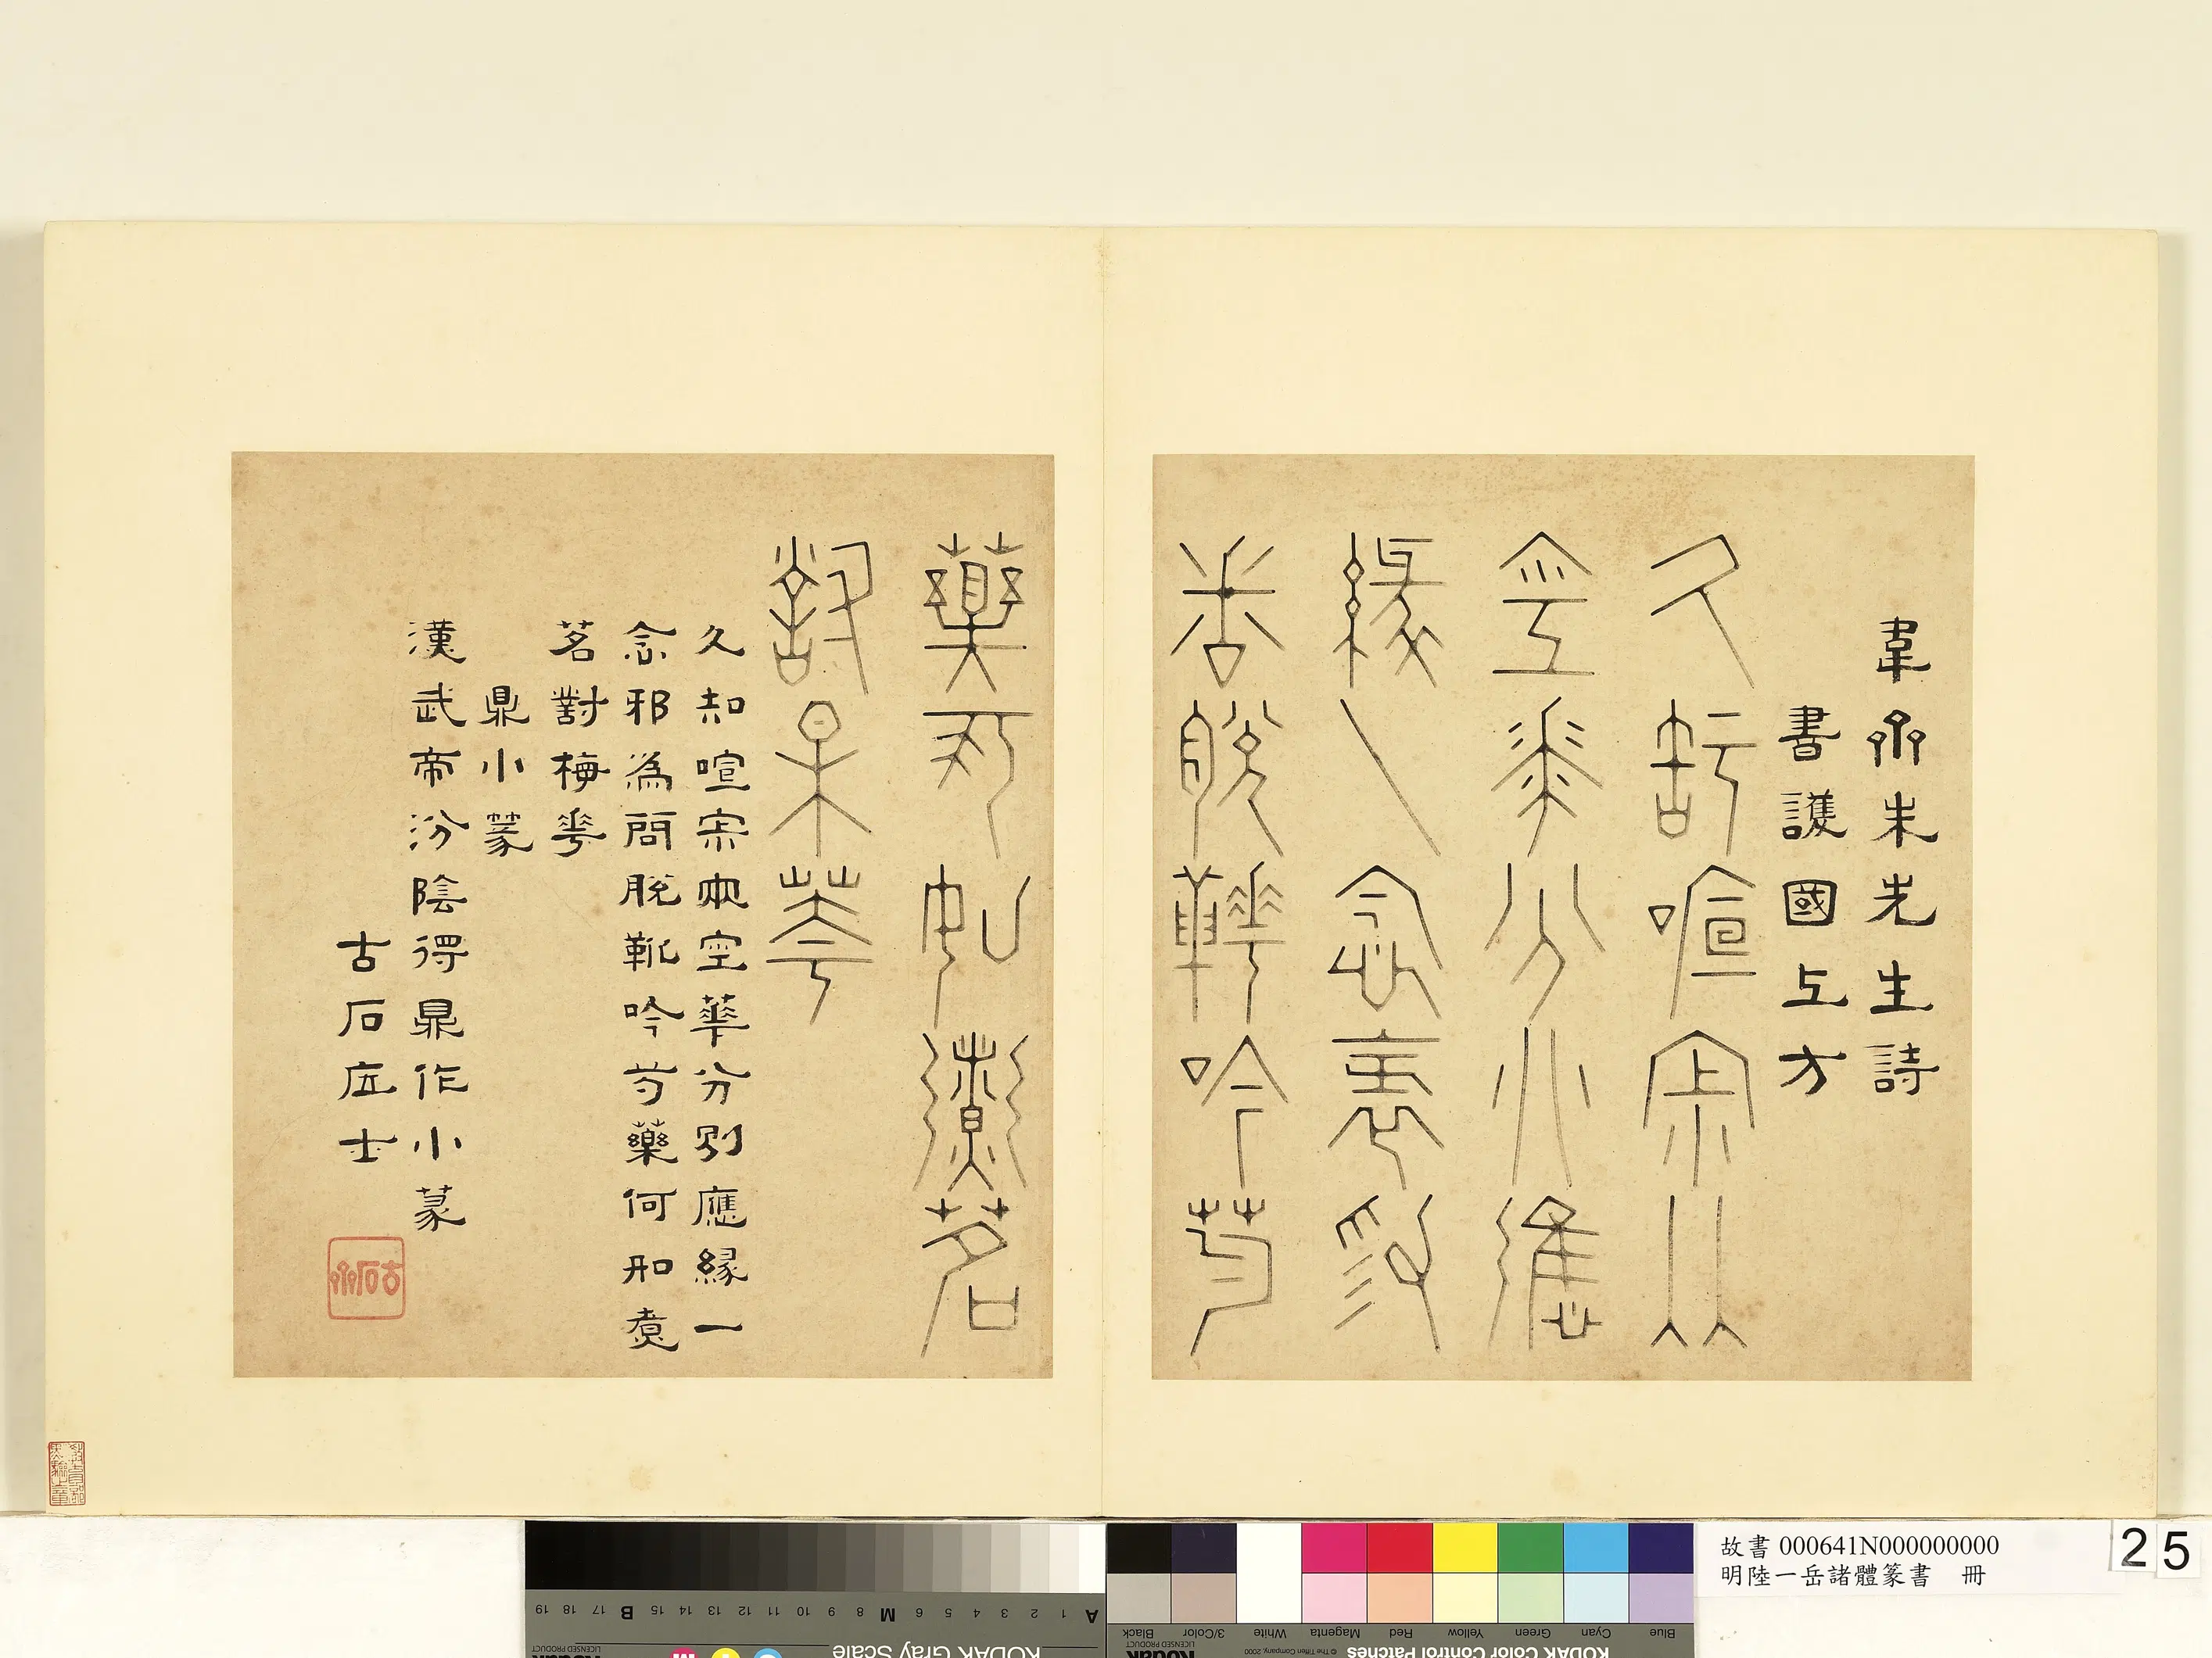 韋齋朱先生詩
書護國上方
久知喧寂
空華分別應
緣一念邪為
香脫鞾吟芍
藥何如煮茗
對梅華
久知喧寂兩空華分別應緣一
念邪為問脫靴吟芍藥何如煮
茗對梅華
鼎小篆
漢武帝汾陰得鼎作小篆
古石庄士
古石齋
故書 000641N000000000
明陸一岳諸體篆書 冊
25
KODAK Gray Scale
A 1 2 3 4 5 6 M 8 9 10 11 12 13 14 15 B 17 18 19
KODAK Color Control Patches
Blue Cyan Green Yellow Red Magenta White 3/Color Black
Kodak
LICENSED PRODUCT
© The Tiffen Company, 2000